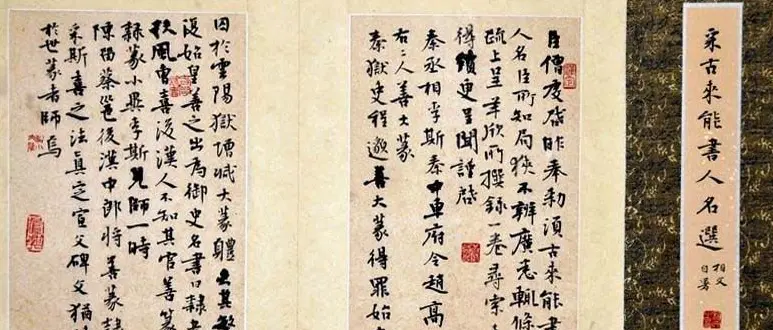 采古來能書人名選
臣僧虔啟昨奉勅須古來能書
人名臣所知局狹不辨廣悉輒條
疏上呈羊欣所撰錄一卷尋索
得續更呈聞謹啟
秦丞相李斯秦中車府令趙高
右二人善大篆
秦獄吏程邈善大篆得罪始
囚於雲陽獄增減大篆體去其繁
復始皇善之出為御史名書曰隸書
扶風曹喜後漢人不知其官善篆
隸篆小異李斯見師一時
陳留蔡邕後漢中郎將善篆隸
采斯喜之法真定宣父碑文猶
於世篆者師焉